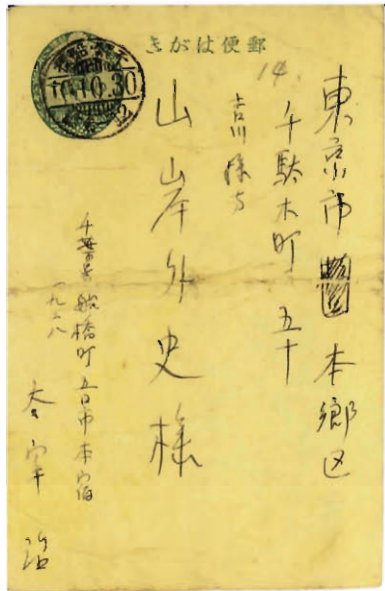 郵便はがき
10.10.30
14.
東京市 本郷区
千駄木町 五十
吉川様方
山岸外史様
千葉県 船橋町 五日市本宿
一九二八
太宰 治